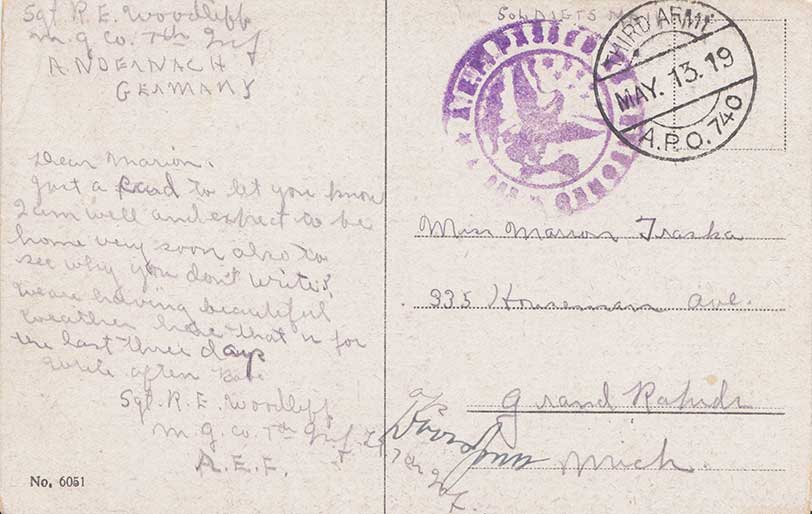 Sgt R. E. Woodliff
M. G. Co. 7th Inf
ANDERNACH
GERMANY
Dear Marion.
Just a card to let you know
I am well and expect to be
home very soon also to
see why you don't write?
We are having beautiful
weather here that is for
the last three days
write often
Sgt. R. E. Woodliff
M. G. Co. 7th Inf.
A. E. F.
No. 6051
SOLDIERS MAIL
A.E.F. PASSED
CENSORED
THIRD ARMY
MAY. 13. 19
A.P.O. 740
Miss Marion Traska
335 Houseman ave.
Grand Rapids
Mich.